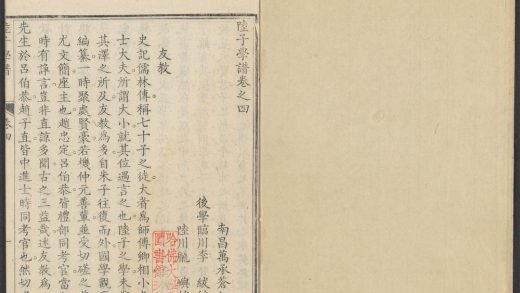 陸子學譜卷之四
南昌萬承蒼
後學臨川李紱
陸川龐嶼
友教
史記儒林傳稱七十子之徒大者爲師傅卿相小
士大夫所謂大小就其位遇言之也陸子之學未
其澤之所及友教爲多自朱子往復而外國學觀
編纂一時聚處賢豪若機仲元善輩並受切磋之
尤文簡座主也趙忠定呂伯恭皆禮部同考官當
時有諱言豈非直諒多聞古之三益哉述友教爲
先生於呂伯恭趙子直皆中進士時同考官也然切
陸子學譜
卷四
一
哈佛大
圖書館